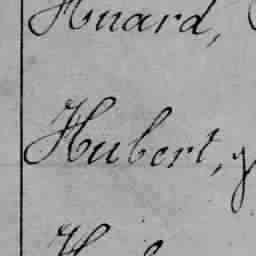 Huard,
Hubert,